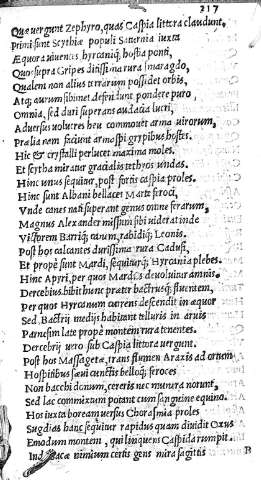 217
Quæ vergunt Zephyro, quas Caspia littora claudunt.
Primi sunt Scythiæ populi Saturnia iuxta
Æquora viuentes, hyrcaniq; hostia ponti,
Quos supra Gripes ditissima rura smaragdo,
Qualem non alius terrarum possidet orbis,
Atq; aurum sibimet defendunt pondere puro,
Omnia, sed duri superans audacia lucri,
Aduersus volucres heu commouet arma virorum,
Prælia nam faciunt armaspi gryphibus hostes.
Hic & crystalli perlucet maxima moles.
Et scytha miratur gracialis tethyos undas.
Hinc unus sequitur, post fortis caspia proles.
Hinc sunt Albani bellaces Marte feroci,
Vnde canes nati superant genus omne ferarum,
Magnus Alexander missum sibi viderat inde
Victorem Barriq; canum, rabidiq; Leonis.
Post hos calcantes durissima rura Cadusi,
Et propè sunt Mardi, sequiturq; Hyrcania plebes.
Hinc Apyri, per quos Mardus deuoluitur amnis.
Dercebius bibit hunc præter bactrusq; fluentem,
Per quos Hyrcanum currens descendit in æquor
Sed Bactrij medijs habitant telluris in aruis
Parnesim late propè montem rura tenentes.
Dercebrij vero sub Caspia littora vergunt.
Post hos Massagetæ, trans flumen Araxis ad ortum
Hospitibus sæui cunctis belloq; feroces
Non bacchi donum, cereris nec munera norunt,
Sed lac commixtum potant cum sanguine equino.
Hos iuxta boream versus Chorasmia proles
Sugdias hanc sequitur rapidus quam diuidit Oxus
Emodum montem, qui linquens Caspida rumpit.
Ind sacæ nimium certis gens mira sagittis
B